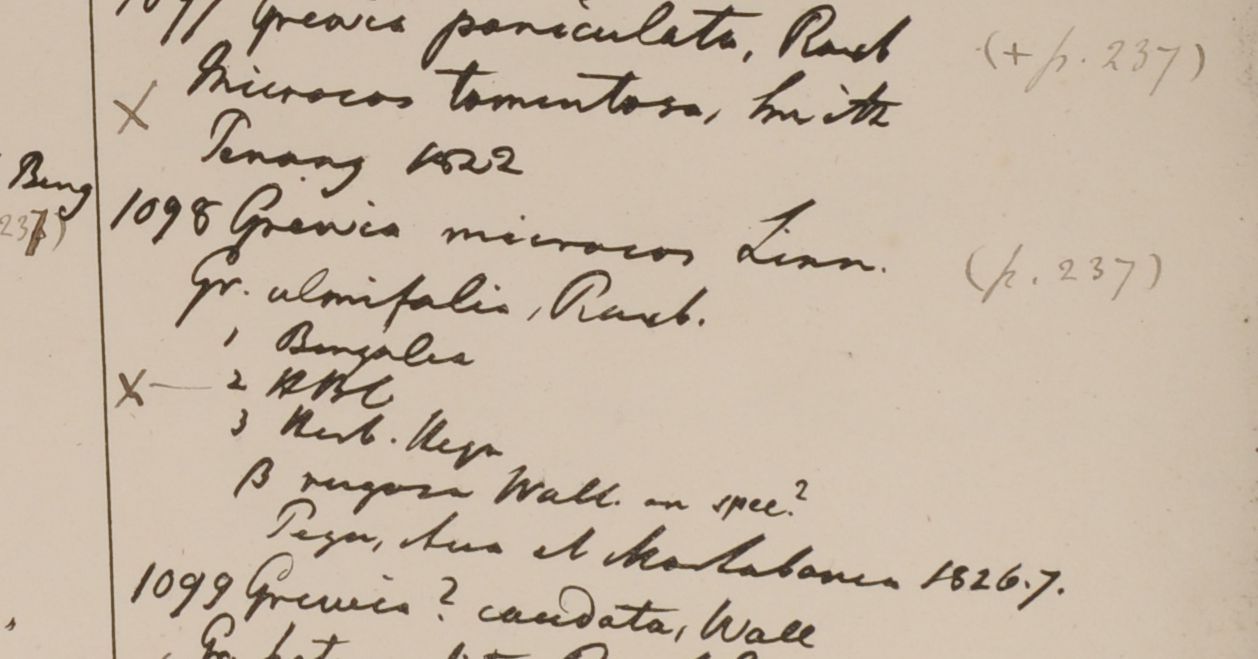 1097 Grewia paniculata, Roxb (+ p. 237)
X Microcos tomentosa, Smith
Penang 1822
Beng
237)
1098 Grewia microcos Linn. (p. 237)
Gr. ulmifolia, Roxb.
1 Bengalea
X — 2 HBC
3 Herb. Heyn
β rugosa Wall. an spec?
Pegu, Ava et Martabanea 1826.7.
1099 Grewia? caudata, Wall
Gr.